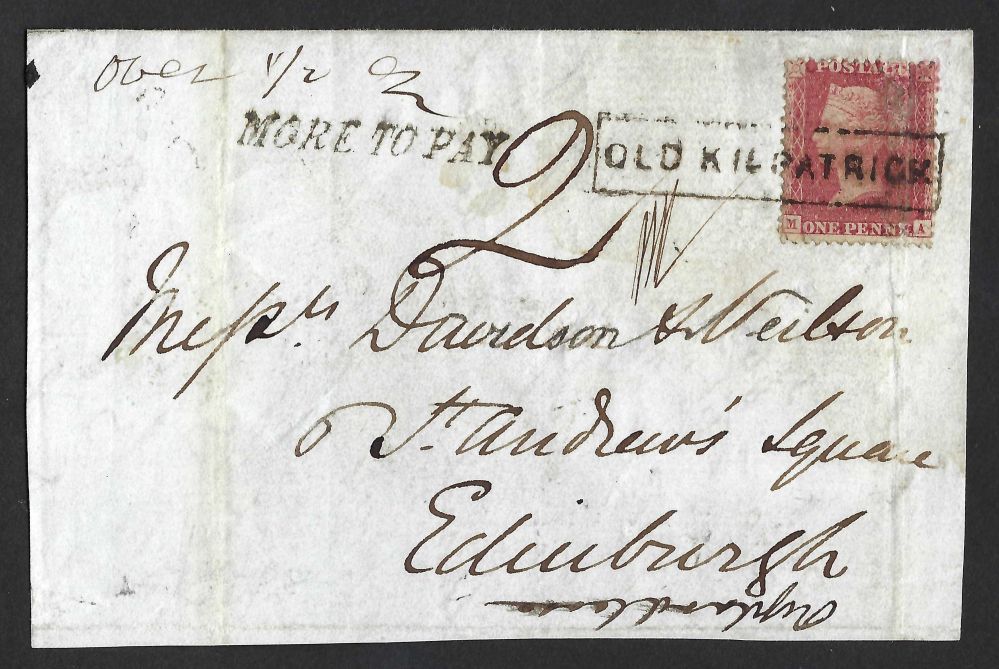 Over 1/2 oz
MORE TO PAY
2
OLD KILPATRICK
POSTAGE
M ONE PENNY A
Messrs Davidson & Neilson
6 St. Andrew's Square
Edinburgh